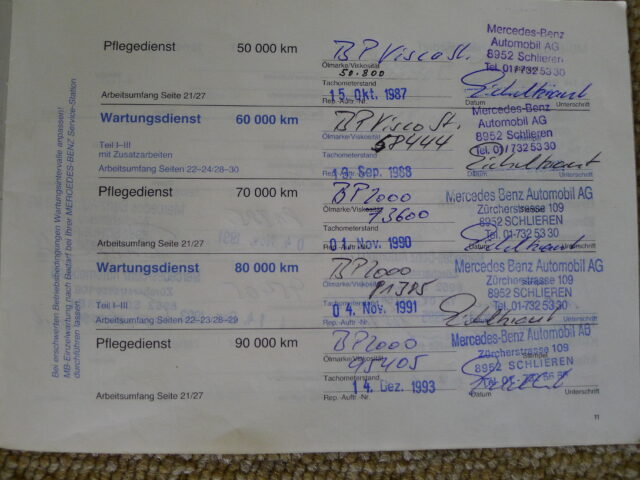 Pflegedienst 50 000 km BP Visco St.
Ölmarke/Viskosität
50.800
Tachometerstand
Arbeitsumfang Seite 21/27 15. Okt. 1987
Rep.-Auftr.-Nr. Datum Unterschrift
Mercedes-Benz
Automobil AG
8952 Schlieren
Tel. 01 732 53 30
Wartungsdienst 60 000 km BP Visco St.
Ölmarke/Viskosität
58444
Teil I–III
mit Zusatzarbeiten
Tachometerstand
Arbeitsumfang Seiten 22–24/28–30 Sep. 1988
Rep.-Auftr.-Nr. Datum Unterschrift
Mercedes-Benz
Automobil AG
8952 Schlieren
Tel. 01/732 53 30
Pflegedienst 70 000 km BP 2000
Ölmarke/Viskosität
73600
Tachometerstand
Arbeitsumfang Seite 21/27 01. Nov. 1990
Rep.-Auftr.-Nr. Datum Unterschrift
Mercedes Benz Automobil AG
Zürcherstrasse 109
8952 SCHLIEREN
Tel. 01-732 53 30
Wartungsdienst 80 000 km BP 2000
Ölmarke/Viskosität
Teil I–III
Tachometerstand
Arbeitsumfang Seiten 22–23/28–29 04. Nov. 1991
Rep.-Auftr.-Nr.
Mercedes Benz Automobil AG
Zürcherstrasse 109
8952 SCHLIEREN
Tel. 01-732 53 30
Pflegedienst 90 000 km BP 2000
Ölmarke/Viskosität
95405
Tachometerstand
Arbeitsumfang Seite 21/27 14. Dez. 1993
Rep.-Auftr.-Nr. Datum Unterschrift
Mercedes-Benz Automobil AG
Zürcherstrasse 109
8952 SCHLIEREN
11
Bei erschwerten Betriebsbedingungen Wartungsintervalle anpassen!
MB-Einzelwartung nach Bedarf bei Ihrer MERCEDES-BENZ Service-Station
durchführen lassen.